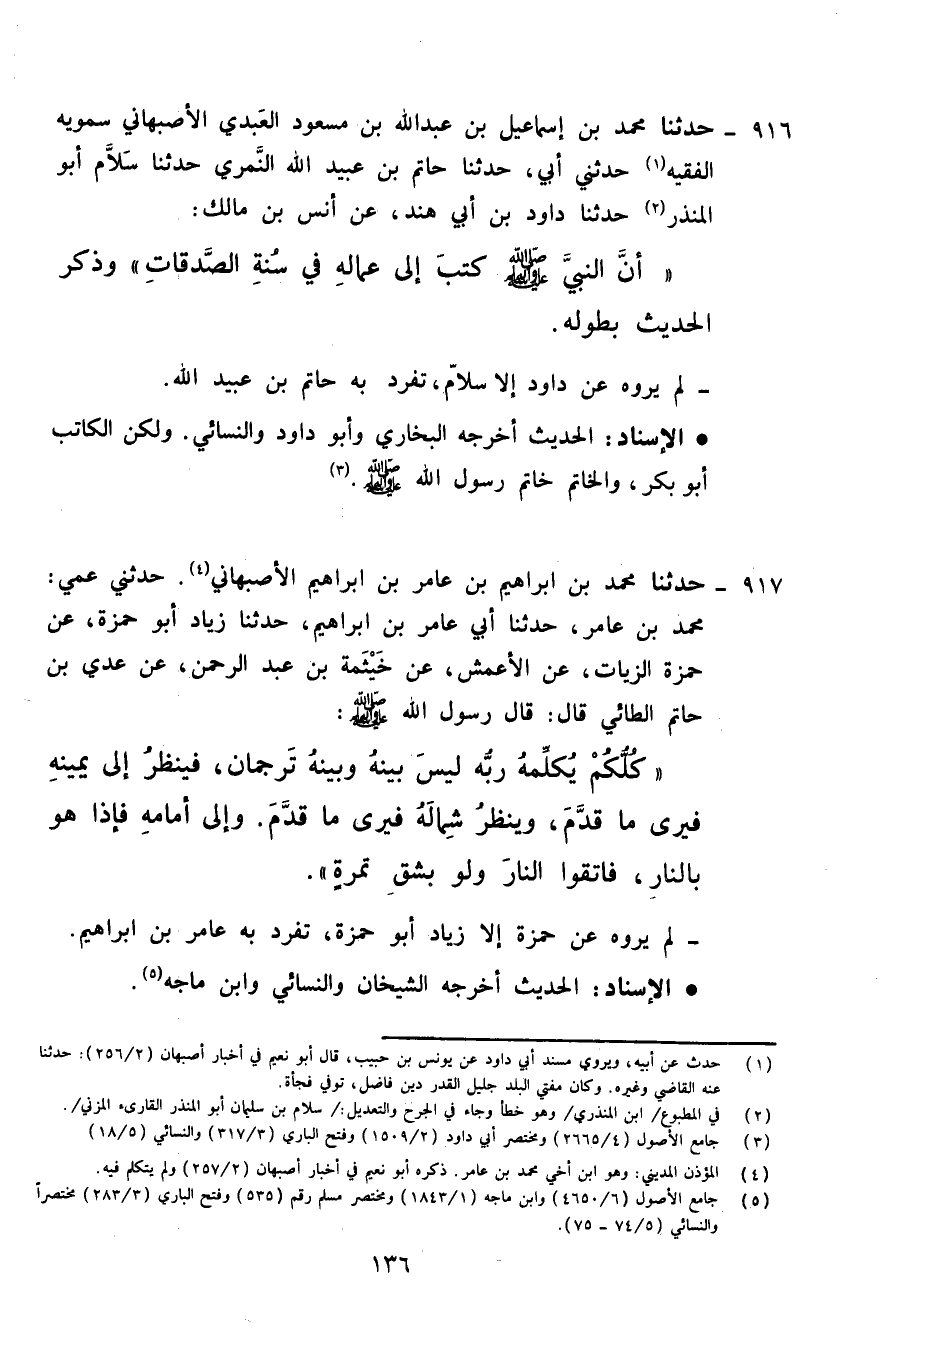 ٩١٦ ـ حدثنا محمد بن إسماعيل بن عبدالله بن مسعود العَبدي الأصبهاني سمويه
الفقيه(١) حدثني أبي، حدثنا حاتم بن عبيد الله النَّمري حدثنا سَلاَّم أبو
المنذر(٢) حدثنا داود بن أبي هند، عن أنس بن مالك:
« أنَّ النبيَّ ﷺ كتبَ إلى عمالهِ في سُنةِ الصَّدقاتِ» وذكر
الحديث بطوله.
ـ لم يروه عن داود إلا سلامّ، تفرد به حاتم بن عبيد الله.
● الإسناد: الحديث أخرجه البخاري وأبو داود والنسائي. ولكن الكاتب
أبو بكر، والخاتم خاتم رسول الله ﷺ.(٣)
٩١٧ ـ حدثنا محمد بن ابراهيم بن عامر بن ابراهيم الأصبهاني(٤). حدثني عمي:
محمد بن عامر، حدثنا أبي عامر بن ابراهيم، حدثنا زياد أبو حمزة، عن
حمزة الزيات، عن الأعمش، عن خَيْثَمة بن عبد الرحمن، عن عدي بن
حاتم الطائي قال: قال رسول الله ﷺ:
« كُلُّكُمْ يُكلِّمهُ ربُّه ليسَ بينهُ وبينهُ تَرجمان، فينظرُ إلى يمينهِ
فيرى ما قدَّمَ، وينظرُ شِمالَهُ فيرى ما قدَّمَ. وإلى أمامهِ فإذا هو
بالنارِ، فاتقوا النارَ ولو بشقِ تمرةٍ».
ـ لم يروه عن حمزة إلا زياد أبو حمزة، تفرد به عامر بن ابراهيم.
● الإسناد: الحديث أخرجه الشيخان والنسائي وابن ماجه(٥).
(١) حدث عن أبيه، ويروي مسند أبي داود عن يونس بن حبيب، قال أبو نعيم في أخبار أصبهان (٢٥٦/٢): حدثنا
عنه القاضي وغيره. وكان مفتي البلد جليل القدر دين فاضل، توفي فجأة.
(٢) في المطبوع/ ابن المنذري/ وهو خطأ وجاء في الجرح والتعديل:/ سلام بن سليمان أبو المنذر القارىء المزني/.
(٣) جامع الأصول (٢٦٦٥/٤) ومختصر أبي داود (١٥٠٩/٢) وفتح الباري (٣١٧/٣) والنسائي (١٨/٥)
(٤) المؤذن المديني: وهو ابن أخي محمد بن عامر. ذكره أبو نعيم في أخبار أصبهان (٢٥٧/٢) ولم يتكلم فيه.
(٥) جامع الأصول (٤٦٥٠/٦) وابن ماجه (١٨٤٣/١) ومختصر مسلم رقم (٥٣٥) وفتح الباري (٢٨٣/٣) مختصراً
والنسائي (٧٤/٥ ـ ٧٥).
١٣٦